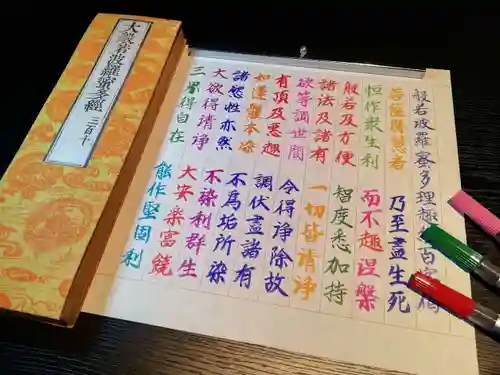 大般若波羅蜜多經 三百十
般若波羅蜜多理趣 百字偈
菩薩勝慧者 乃至盡生死
恒作衆生利 而不趣涅槃
般若及方便 智度悉加持
諸法及諸有 一切皆清淨
欲等調世間 令得淨除故
有頂及惡趣 調伏盡諸有
如蓮體本染 不爲垢所染
諸慾性亦然 不染利群生
大欲得清淨 大安楽富饒
三界得自在 能作堅固利